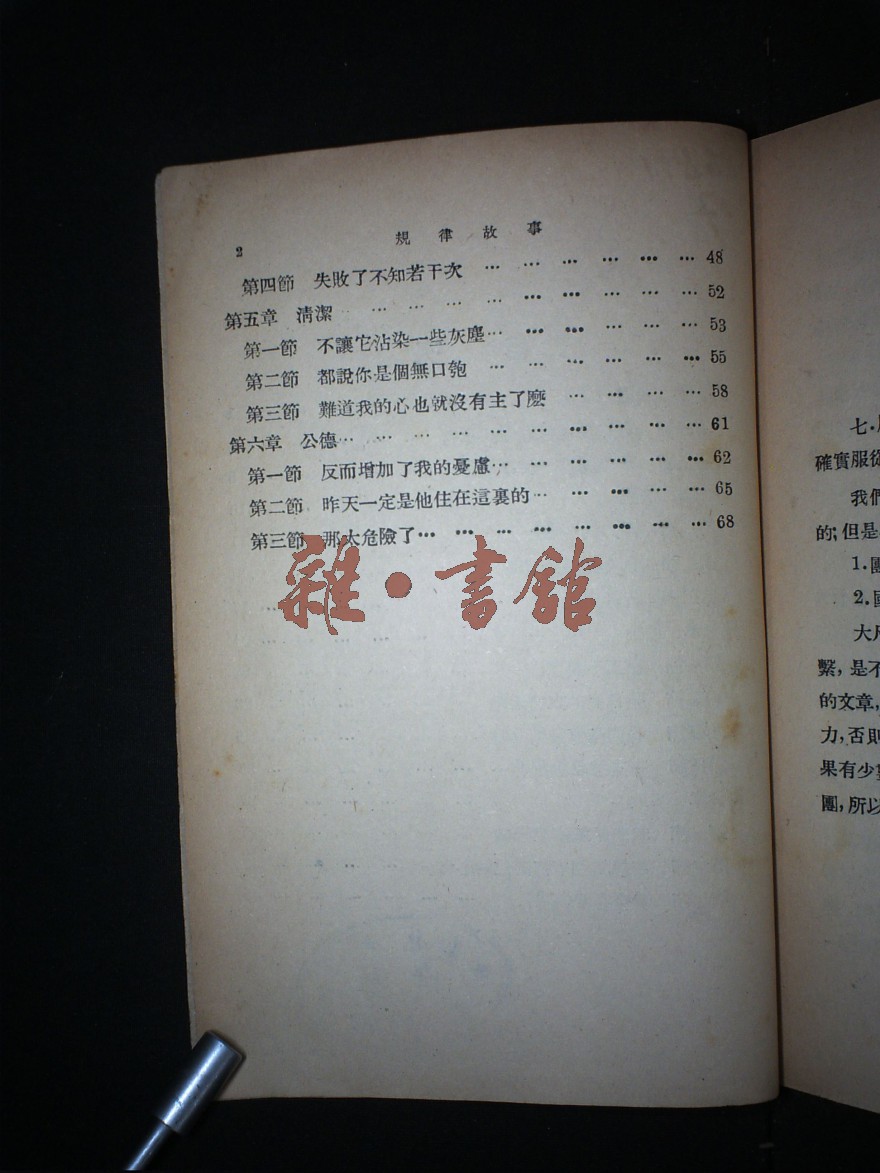 2 規律故事
第四節 失敗了不知若干次 … … … … … … 48
第五章 清潔 … … … … … … … … … … 52
第一節 不讓它沾染一些灰塵… … … … … … 53
第二節 都說你是個無口匏 … … … … … … 55
第三節 難道我的心也就沒有主了麽 … … … … 58
第六章 公德… … … … … … … … … … 61
第一節 反而增加了我的憂慮… … … … … … 62
第二節 昨天一定是他住在這裏的… … … … … 65
第三節 那太危險了… … … … … … … … 68
雜·書館
七.
確實服從
我們
的;但是
1.團
2.
大凡
繫,是不
的文章,
力,否則
果有少數
團,所以